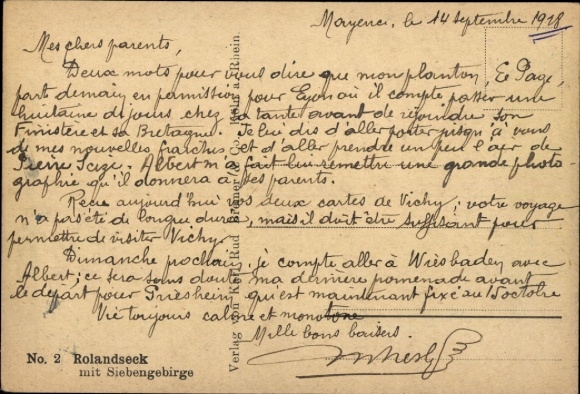 Mayence, le 14 septembre 1928
Mes chers parents,
Deux mots pour vous dire que mon planton, Le Page,
part demain en permission pour Lyon où il compte passer une
huitaine de jours chez sa tante avant de rejoindre son
Finistère et sa Bretagne. Je lui dis d'aller porter jusqu'à vous
de mes nouvelles fraîches et d'aller prendre un peu l'air de
Pierre Scize. Albert m'a fait lui remettre une grande photo
graphie qu'il donnera à ses parents.
Reçu aujourd'hui vos deux cartes de Vichy; votre voyage
n'a pas été de longue durée, mais il doit être suffisant pour
permettre de visiter Vichy.
Dimanche prochain, je compte aller à Wiesbaden avec
Albert; ce sera sans doute ma dernière promenade avant
le départ pour Griesheim qui est maintenant fixé au 1 octobre
Vie toujours calme et monotone
Mille bons baisers.
No. 2 Rolandseck
mit Siebengebirge
Verlag von Karl Rud. Bremer & Co., Köln a. Rhein.